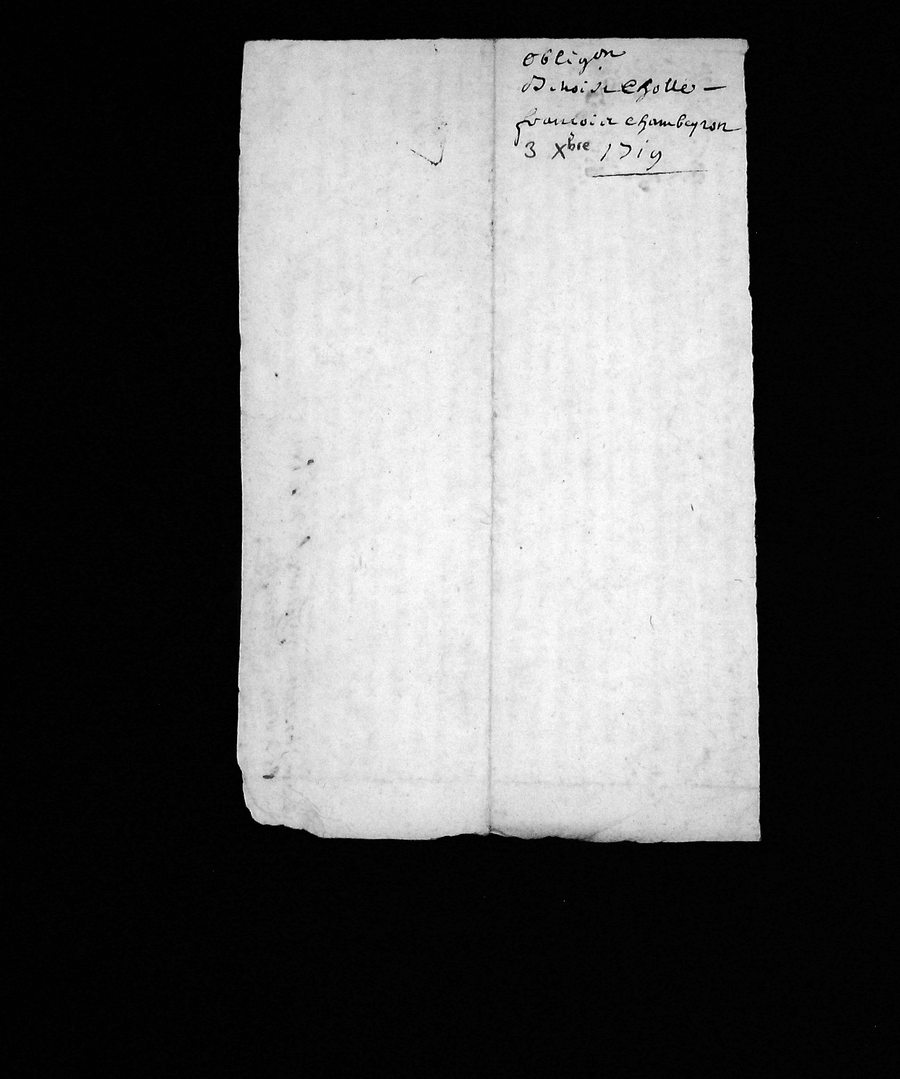 Obligon
Benoist Cholle -
francois chambeyron
3 Xbre 1719